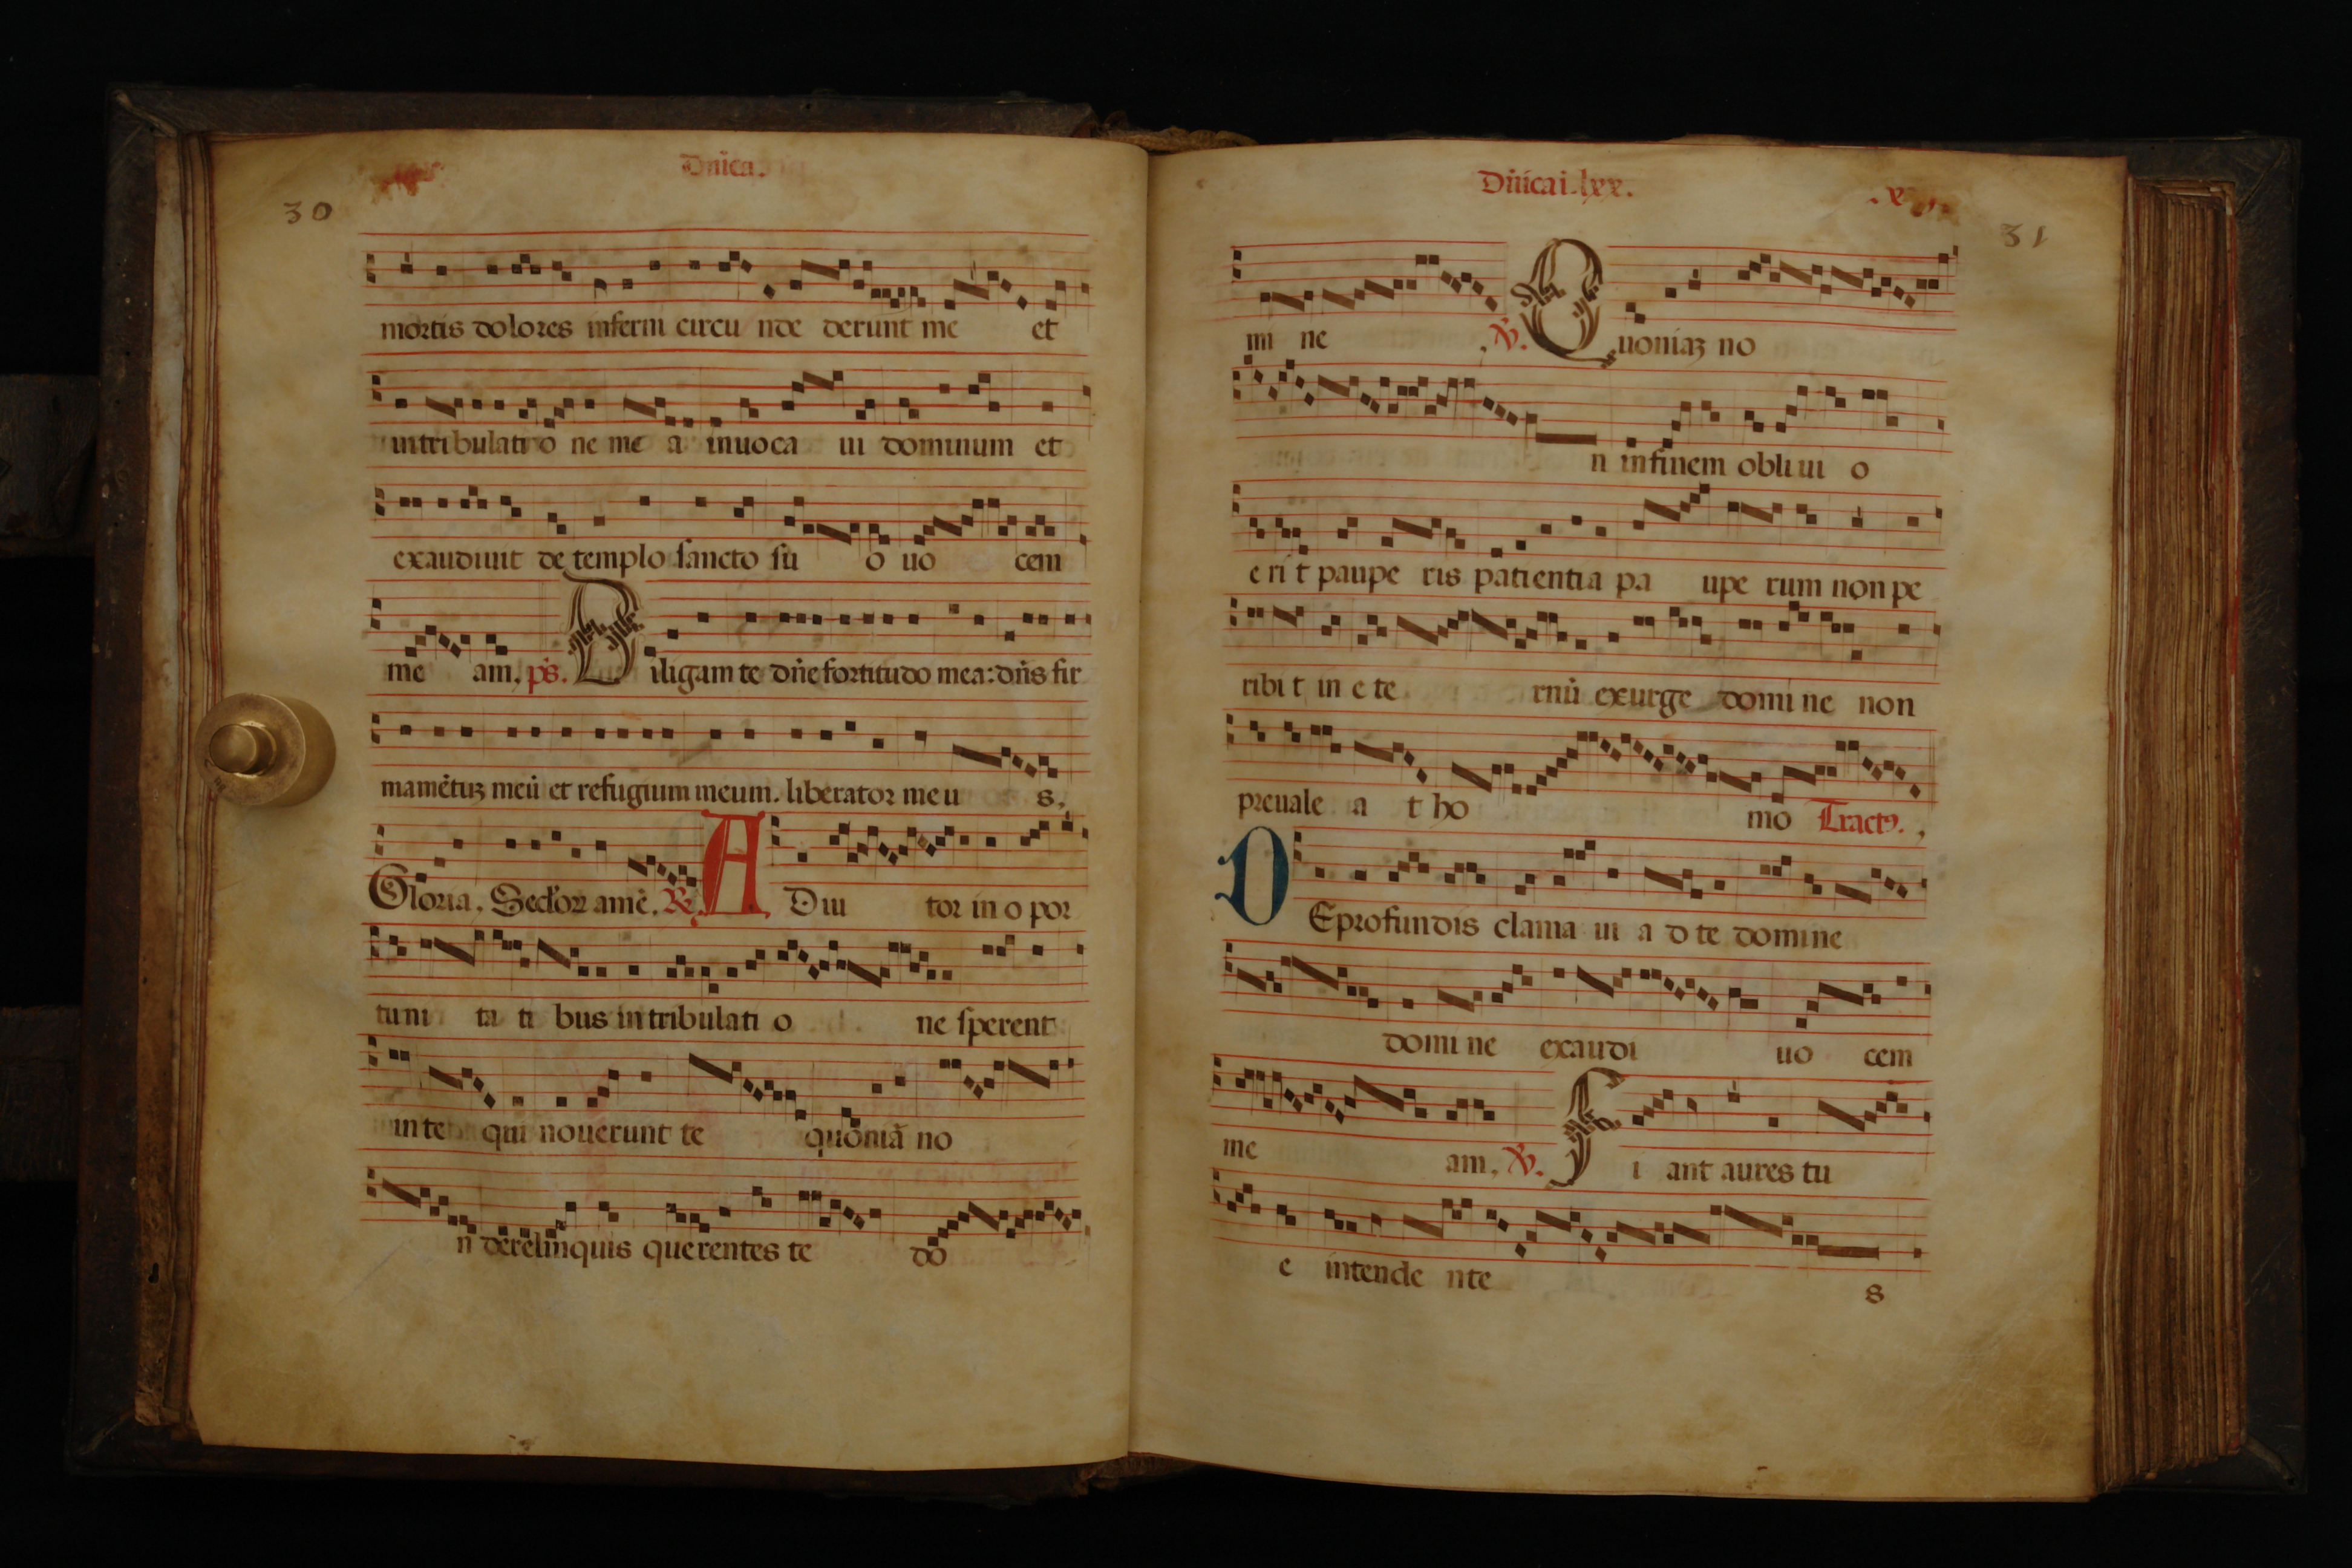 Dñica.
30
mortis dolores inferni circu nde derunt me et
in tribulati o ne me a inuoca ui dominum et
exaudiuit de templo sancto su o uo cem
me am. ps. Diligam te dñe fortitudo mea: dñs fir
mamētuꝫ meū et refugium meum. liberator meu s.
Gloria. Sectorꝝ amē. ℟. ADiu tor in o por
tuni ta ti bus in tribulati o ne sperent
in te qui nouerunt te quoniā no
n derelinquis querentes te do
Dñica i lxx.
31
mi ne ℣. Quoniaꝫ no
n in finem obliui o
e ri t paupe ris patientia pa upe rum non pe
ribi t in e te rnū exurge domi ne non
preuale a t ho mo Tractꝰ.
DE profundis clama ui a d te domine
domi ne exaudi uo cem
me am. ℣. Fi ant aures tu
e intende nte
s